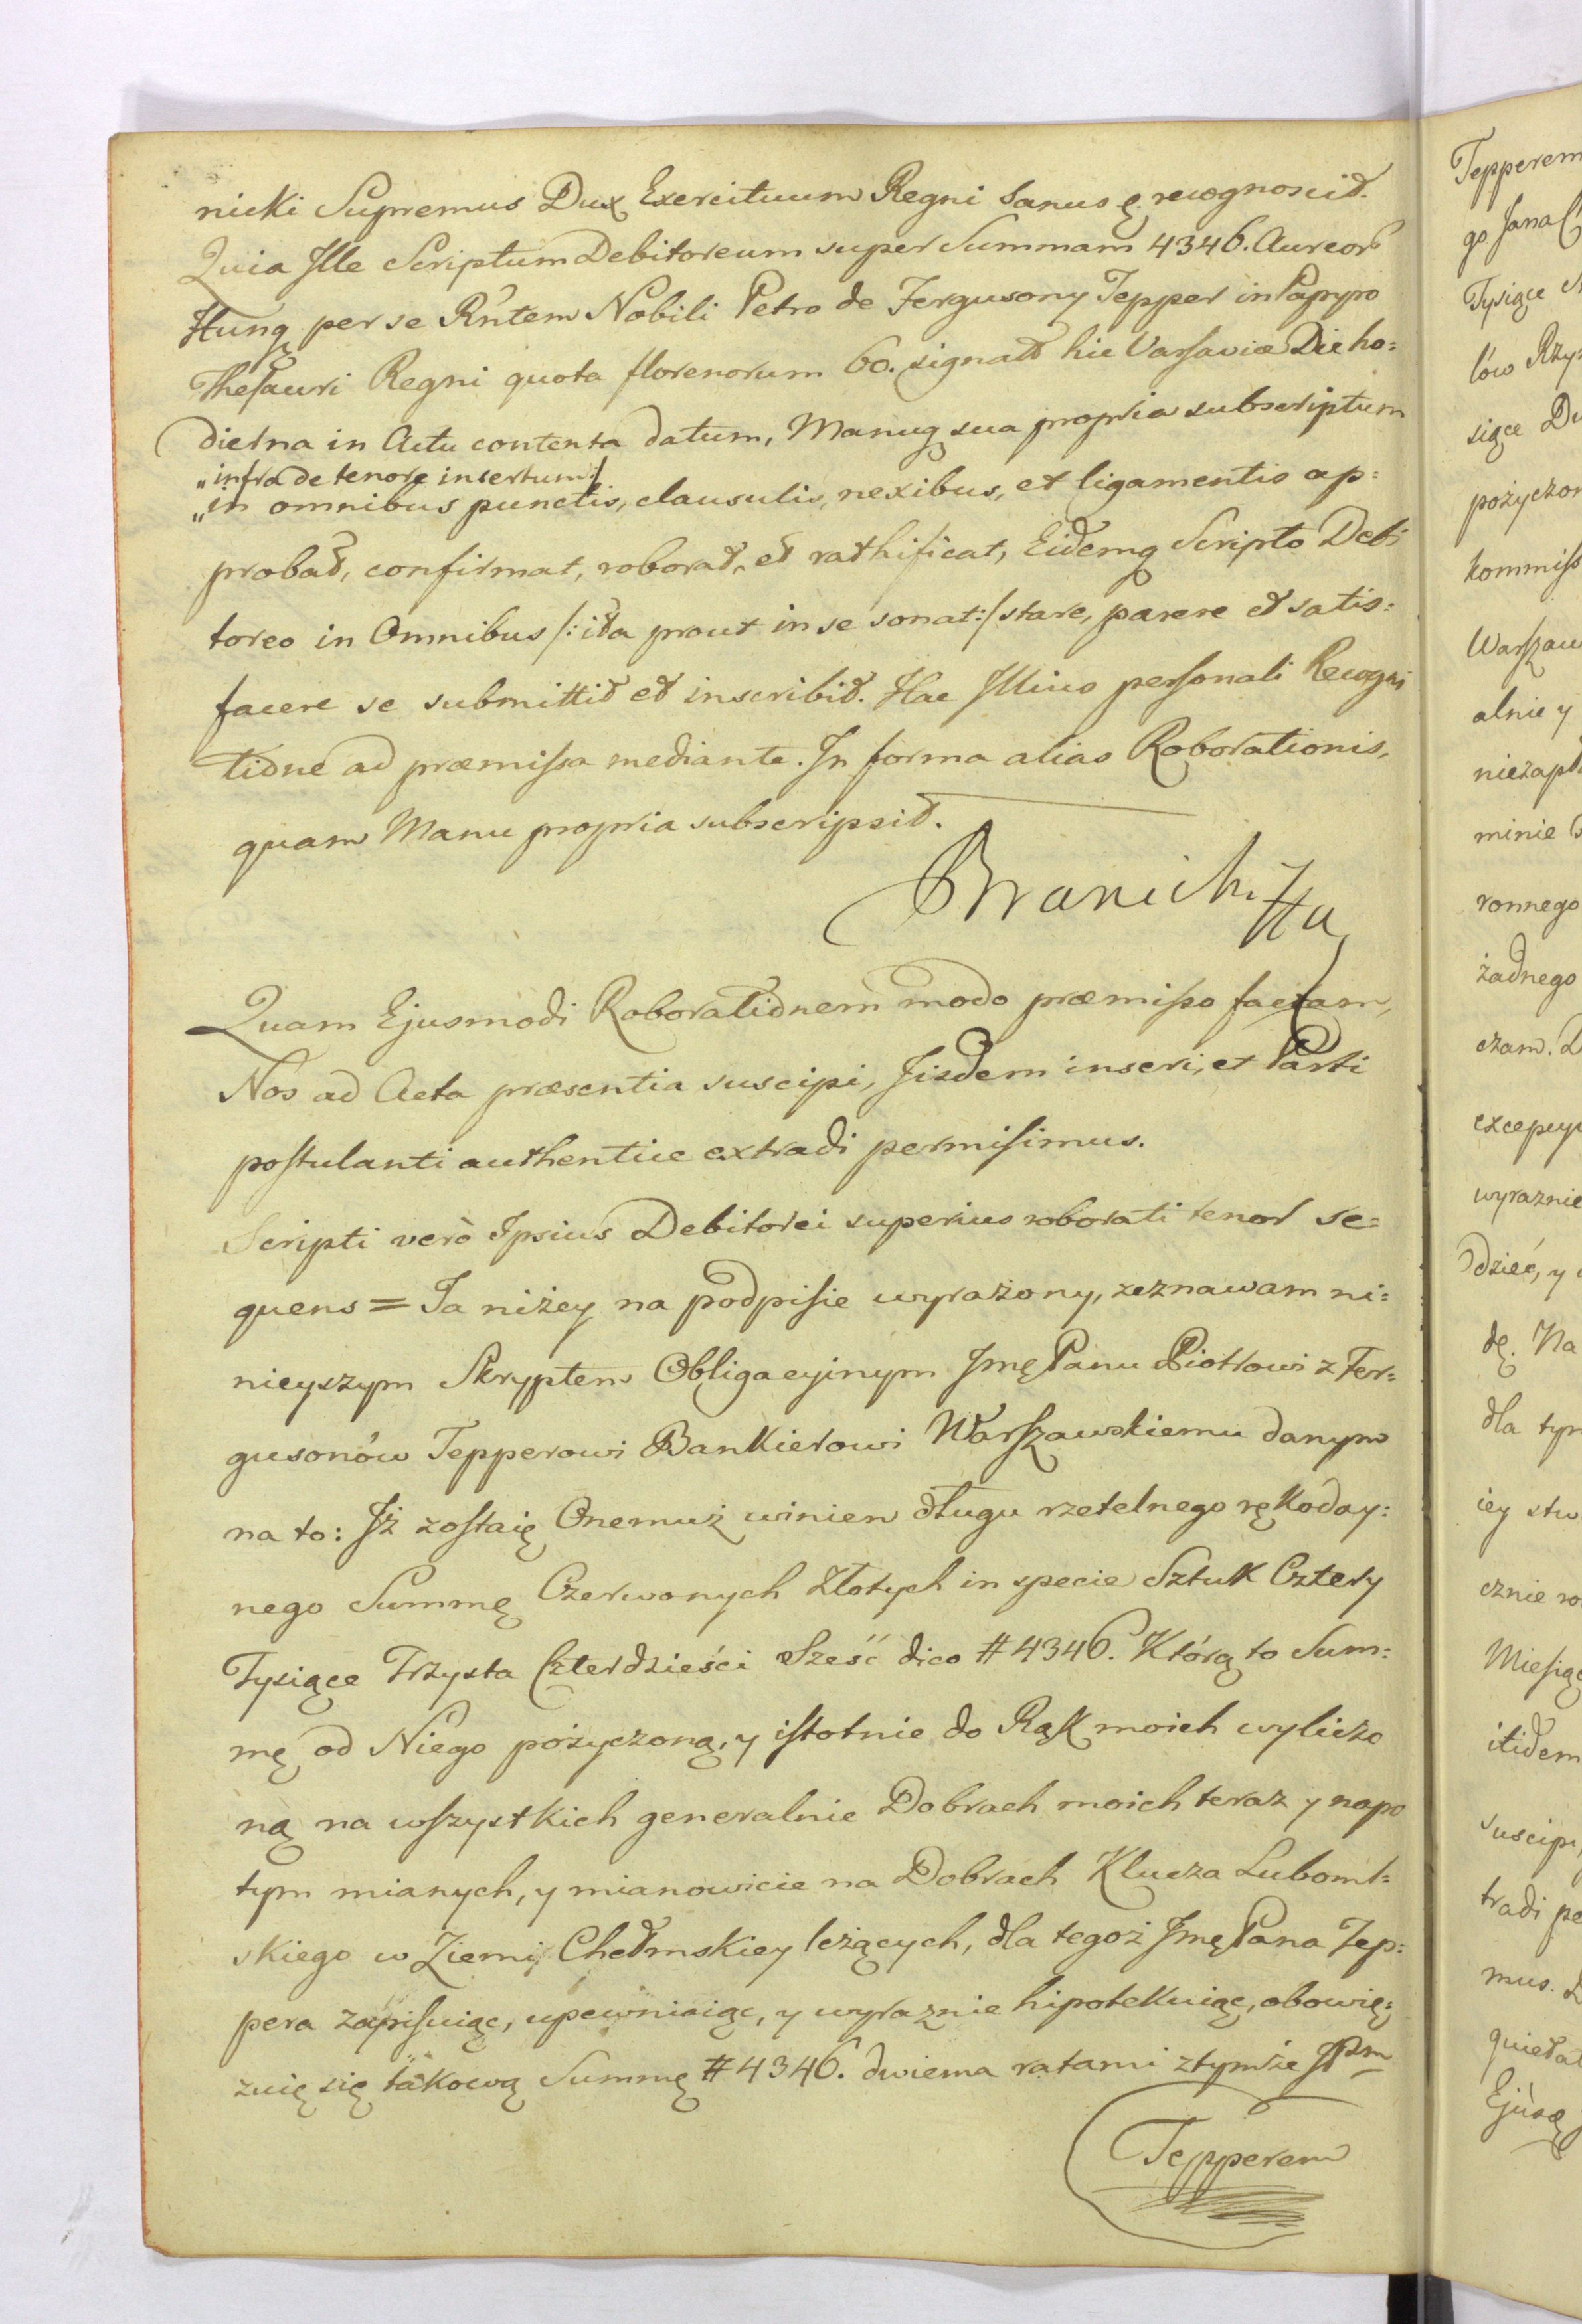 nicki Supremus Dux Exercituum Regni Sanus ę. recognoscit.
Quia Ille Scriptum Debitoreum super Summam 4346. Aureor
Hung per se Rńtem Nobili Petro de Fergusony Tepper in Papyro
Thesauri Regni quota florenorum 60. signato hic Varsaviæ Die ho:
dierna in Actu contenta datum, Manuq sua propria subscriptum
„infra de tenore insertum/
„in omnibus punctis, clausulis, nexibus, et ligamentis ap:
probat, confirmat, roborat, et rathificat, Eidemq Scripto Debi
toreo in Omnibus /: ita prout in se sonat :/ stare, parere et satis:
facere se submittit et inscribit. Hac Illius personali Recogni
tione ad præmissa mediante. In forma alias Roborationis,
quam Manu propria subscripsit.
Branicki
Quam Ejusmodi Roborationem modo præmisso factam,
Nos ad Acta præsentia suscipi, Iisdem inseri, et Parti
postulanti authentice extradi permisimus.
Scripti verò Ipsius Debitorei superius roborati tenor se=
quens = Ja niżey na podpisie wyrażony, zeznawam ni:
nieyszym Skryptem Obligacyinym Jmę Panu Piotrowi z Fer:
gusonów Tepperowi Bankierowi Warszawskiemu danym
na to: Iż zostaię Onemuż winien długu rzetelnego rękoday:
nego Summę Czerwonych Złotych in specie Sztuk Cztery
Tysiące Trzysta Czterdzieści Sześć dico # 4346. Którą to Sum:
mę od Niego pożyczoną, y istotnie do Rąk moich wyliczo
ną na wszystkich generalnie Dobrach moich teraz y napo
tym mianych, y mianowicie na Dobrach Klucza Luboml:
skiego w Ziemi Chełmskiey leżących, dla tegoż Jmę Pana Tep:
pera zapisuiąc, upewniaiąc, y wyraznie hipotekuiąc, obowię:
zuię się takową Summę # 4346. dwiema ratami z tymże JPm
Tepperem
Tepperem
go Jana
Tysiące
lów
siące
pożyczon
kommiss
Warszaw
alnie y
niezapł
minie
ronnego
żadnego
czam.
excepcy
wyraznie
dzieć, y
dę. Na
dla tym
iey stw
cznie ro
Miesiąc
itidem
suscipi,
tradi pe
mus.
quietat